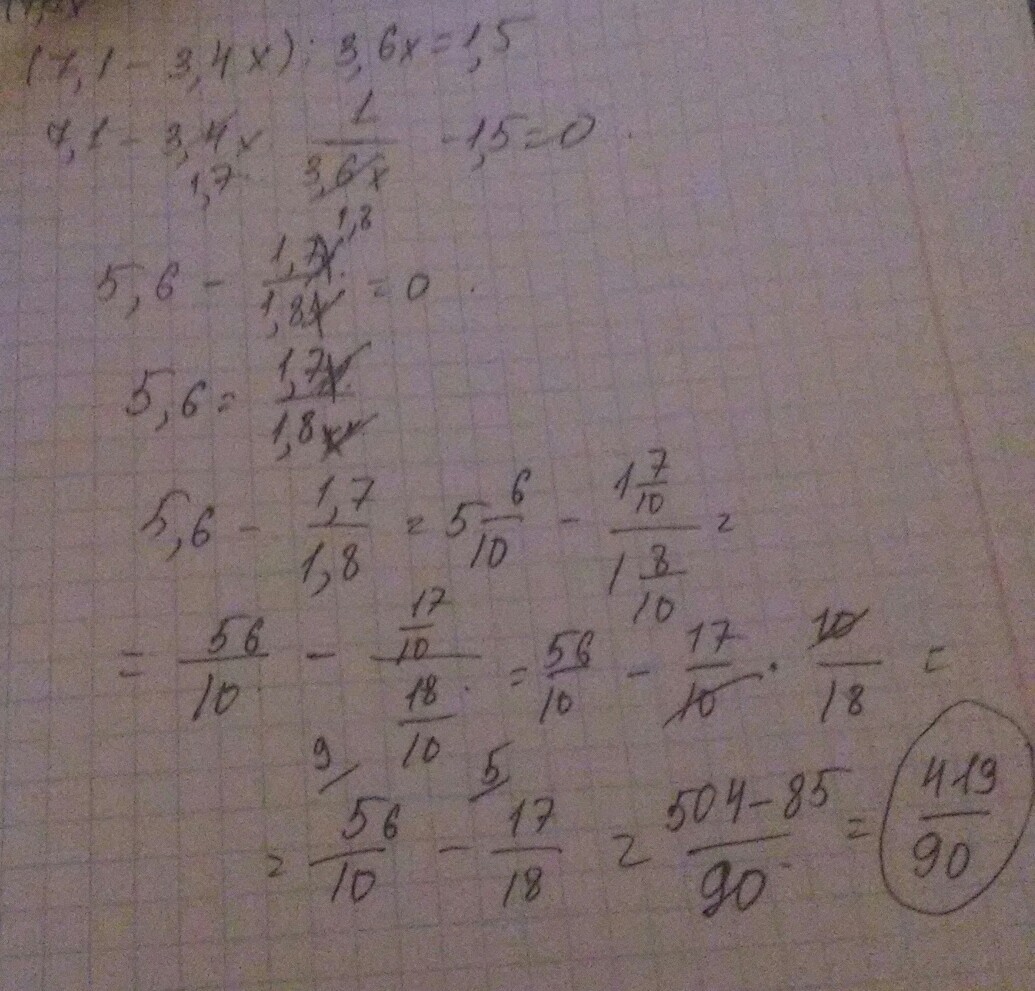 (7,1 - 3,4x) : 3,6x = 1,5
7,1 - 3,4x 1/3,6x - 1,5 = 0
1,7 1,8
5,6 - 1,7x/1,8x = 0
5,6 = 1,7x/1,8x
5,6 - 1,7/1,8 = 5 6/10 - 1 7/10 / 1 8/10 =
= 56/10 - 17/10 / 18/10 = 56/10 - 17/10 · 10/18 =
9 5
= 56/10 - 17/18 = 504-85/90 = 419/90